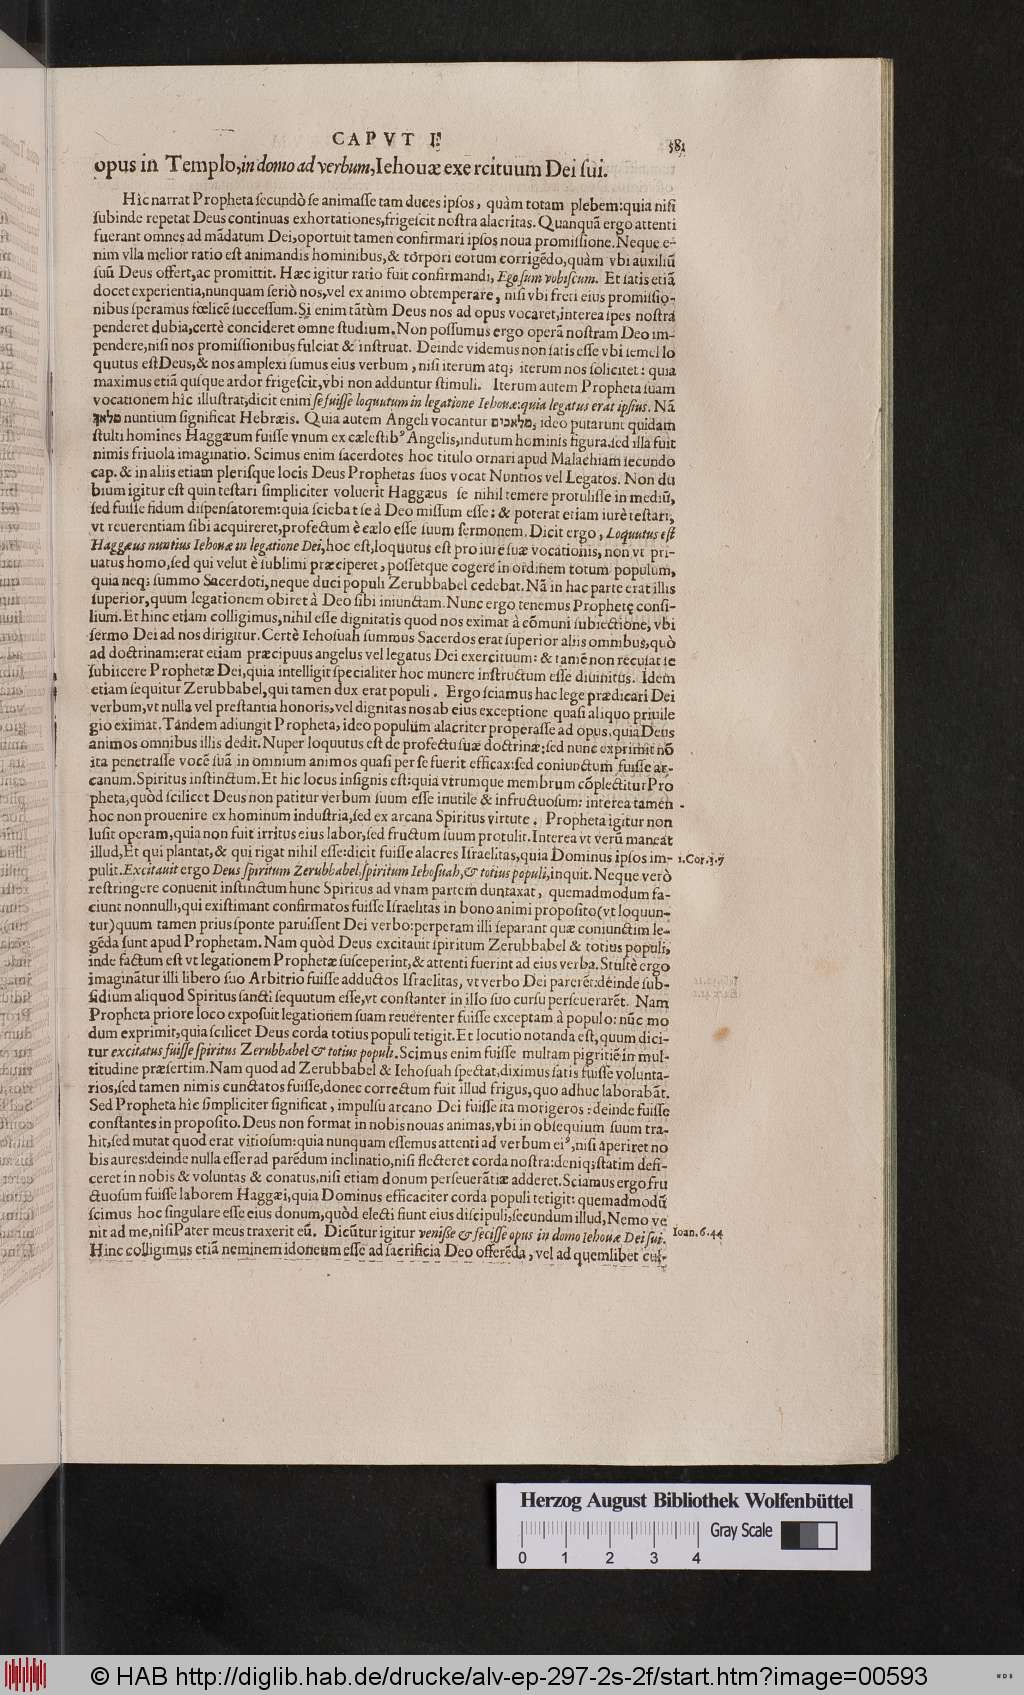 CAPVT I.
581
opus in Templo, in domo ad verbum, Iehouæ exercituum Dei sui.
Hic narrat Propheta secundò se animasse tam duces ipsos, quàm totam plebem: quia nisi
subinde repetat Deus continuas exhortationes, frigescit nostra alacritas. Quanquã ergo attenti
fuerant omnes ad mãdatum Dei, oportuit tamen confirmari ipsos noua promissione. Neque e-
nim vlla melior ratio est animandis hominibus, & torpori eorum corrigẽdo, quàm vbi auxiliũ
suũ Deus offert, ac promittit. Hæc igitur ratio fuit confirmandi, Ego sum vobiscum. Et satis etiã
docet experientia, nunquam seriò nos, vel ex animo obtemperare, nisi vbi freti eius promissio-
nibus speramus fœlicẽ successum. Si enim tãtùm Deus nos ad opus vocaret, interea spes nostra
penderet dubia, certè concideret omne studium. Non possumus ergo operã nostram Deo im-
pendere, nisi nos promissionibus fulciat & instruat. Deinde videmus non satis esse vbi semel lo
quutus est Deus, & nos amplexi sumus eius verbum, nisi iterum atq; iterum nos solicitet: quia
maximus etiã quisque ardor frigescit, vbi non adduntur stimuli. Iterum autem Propheta suam
vocationem hic illustrat, dicit enim se fuisse loquutum in legatione Iehouæ: quia legatus erat ipsius. Nã
מלאך nuntium significat Hebræis. Quia autem Angeli vocantur מלאכים, ideo putarunt quidam
stulti homines Haggæum fuisse vnum ex cælestibꝰ Angelis, indutum hominis figura. sed illa fuit
nimis friuola imaginatio. Scimus enim sacerdotes hoc titulo ornari apud Malachiam secundo
cap. & in aliis etiam plerisque locis Deus Prophetas suos vocat Nuntios vel Legatos. Non du
bium igitur est quin testari simpliciter voluerit Haggæus se nihil temere protulisse in mediũ,
sed fuisse fidum dispensatorem: quia sciebat se à Deo missum esse: & poterat etiam iurè testari,
vt reuerentiam sibi acquireret, profectum è cælo esse suum sermonem. Dicit ergo, Loquutus est
Haggæus nuntius Iehouæ in legatione Dei, hoc est, loquutus est pro iure suæ vocationis, non vt pri-
uatus homo, sed qui velut è sublimi præciperet, possetque cogere in ordinem totum populum,
quia neq; summo Sacerdoti, neque duci populi Zerubbabel cedebat. Nã in hac parte erat illis
superior, quum legationem obiret à Deo sibi iniunctam. Nunc ergo tenemus Prophetę consi-
lium. Et hinc etiam colligimus, nihil esse dignitatis quod nos eximat à cõmuni subiectione, vbi
sermo Dei ad nos dirigitur. Certè Iehosuah summus Sacerdos erat superior aliis omnibus, quò
ad doctrinam: erat etiam præcipuus angelus vel legatus Dei exercituum: & tamẽ non recusat se
subiicere Prophetæ Dei, quia intelligit specialiter hoc munere instructum esse diuinitus. Idem
etiam sequitur Zerubbabel, qui tamen dux erat populi. Ergo sciamus hac lege prædicari Dei
verbum, vt nulla vel prestantia honoris, vel dignitas nos ab eius exceptione quasi aliquo priuile
gio eximat. Tandem adiungit Propheta, ideo populum alacriter properasse ad opus, quia Deus
animos omnibus illis dedit. Nuper loquutus est de profectu suæ doctrinæ: sed nunc exprimit nõ
ita penetrasse vocẽ suã in omnium animos quasi per se fuerit efficax: sed coniunctum fuisse ar-
canum. Spiritus instinctum. Et hic locus insignis est: quia vtrumque membrum cõplectitur Pro
pheta, quòd scilicet Deus non patitur verbum suum esse inutile & infructuosum: interea tamen
hoc non prouenire ex hominum industria, sed ex arcana Spiritus virtute. Propheta igitur non
lusit operam, quia non fuit irritus eius labor, sed fructum suum protulit. Interea vt verũ maneat
illud, Et qui plantat, & qui rigat nihil esse: dicit fuisse alacres Israelitas, quia Dominus ipsos im-
1. Cor. 3. 7
pulit. Excitauit ergo Deus spiritum Zerubbabel, spiritum Iehosuah, & totius populi, inquit. Neque verò
restringere conuenit instinctum hunc Spiritus ad vnam partem duntaxat, quemadmodum fa-
ciunt nonnulli, qui existimant confirmatos fuisse Israelitas in bono animi proposito (vt loquun-
tur) quum tamen prius sponte paruissent Dei verbo: perperam illi separant quæ coniunctim le-
gẽda sunt apud Prophetam. Nam quòd Deus excitauit spiritum Zerubbabel & totius populi,
inde factum est vt legationem Prophetæ susceperint, & attenti fuerint ad eius verba. Stultè ergo
imaginãtur illi libero suo Arbitrio fuisse adductos Israelitas, vt verbo Dei parerẽt: deinde sub-
sidium aliquod Spiritus sancti sequutum esse, vt constanter in illo suo cursu perseuerarẽt. Nam
Propheta priore loco exposuit legationem suam reuerenter fuisse exceptam à populo: nũc mo
dum exprimit, quia scilicet Deus corda totius populi tetigit. Et locutio notanda est, quum dici-
tur excitatus fuisse spiritus Zerubbabel & totius populi. Scimus enim fuisse multam pigritiẽ in mul-
titudine præsertim. Nam quod ad Zerubbabel & Iehosuah spectat, diximus satis fuisse volunta-
rios, sed tamen nimis cunctatos fuisse, donec correctum fuit illud frigus, quo adhuc laborabãt.
Sed Propheta hic simpliciter significat, impulsu arcano Dei fuisse ita morigeros: deinde fuisse
constantes in proposito. Deus non format in nobis nouas animas, vbi in obsequium suum tra-
hit, sed mutat quod erat vitiosum: quia nunquam essemus attenti ad verbum eiꝰ, nisi aperiret no
bis aures: deinde nulla esser ad parẽdum inclinatio, nisi flecteret corda nostra: deniq; statim defi-
ceret in nobis & voluntas & conatus, nisi etiam donum perseuerãtiæ adderet. Sciamus ergo fru
ctuosum fuisse laborem Haggæi, quia Dominus efficaciter corda populi tetigit: quemadmodũ
scimus hoc singulare esse eius donum, quòd electi fiunt eius discipuli, secundum illud, Nemo ve
nit ad me, nisi Pater meus traxerit eũ. Dicũtur igitur venisse & fecisse opus in domo Iehouæ Dei sui.
Ioan. 6. 44
Hinc colligimus etiã neminem idoneum esse ad sacrificia Deo offerẽda, vel ad quemlibet cul-
Herzog August Bibliothek Wolfenbüttel
0 1 2 3 4
Gray Scale
© HAB http://diglib.hab.de/drucke/alv-ep-297-2s-2f/start.htm?image=00593